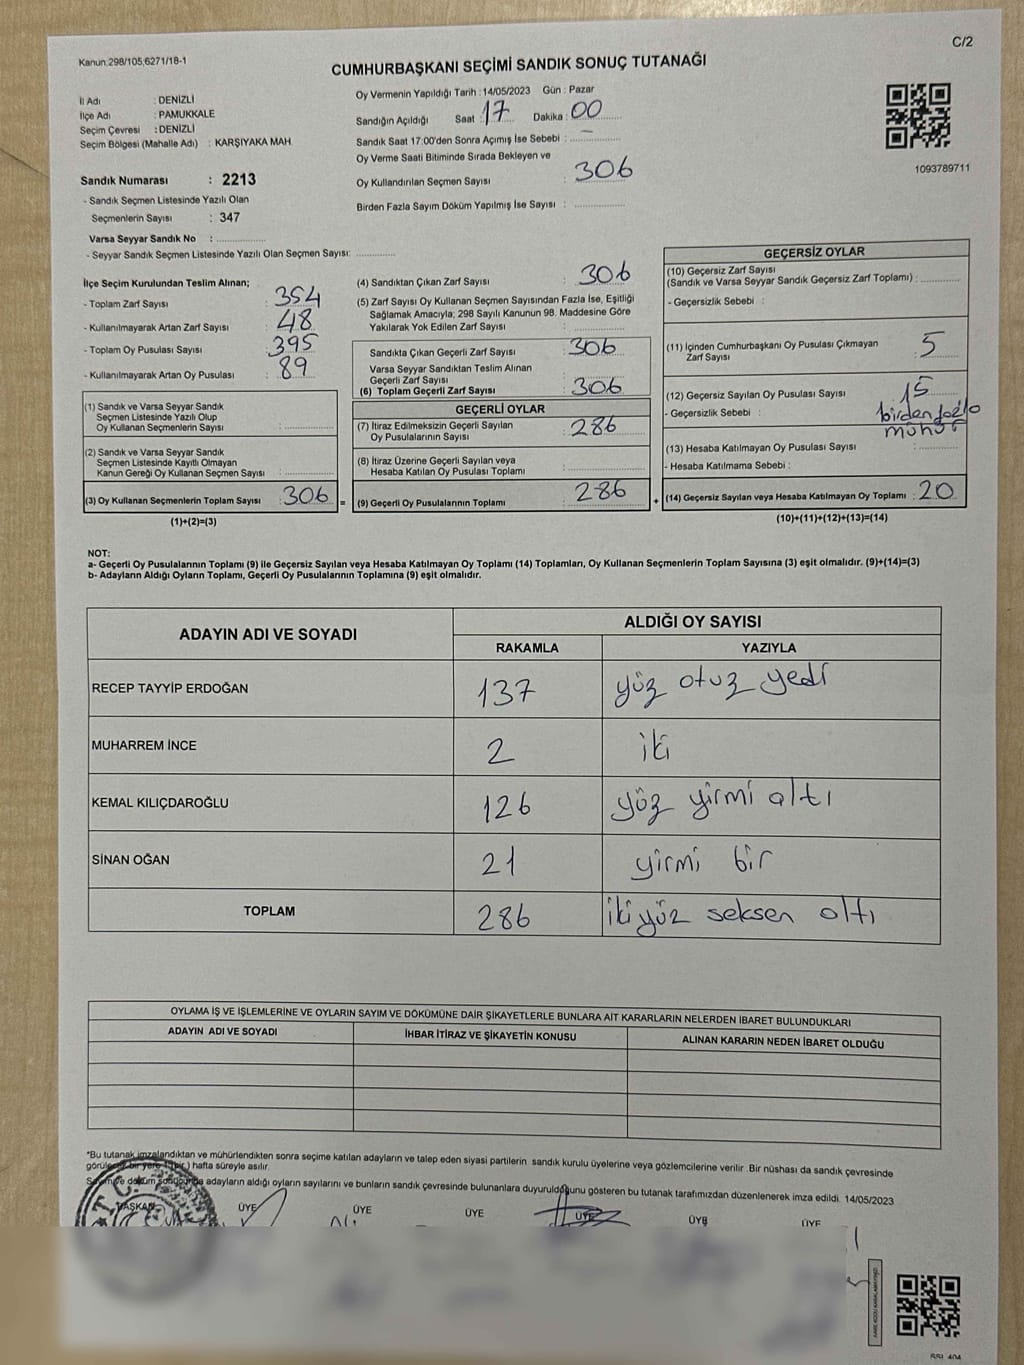 C/2
Kanun:298/105,6271/18-1
CUMHURBAŞKANI SEÇİMİ SANDIK SONUÇ TUTANAĞI
İl Adı : DENİZLİ
İlçe Adı : PAMUKKALE
Seçim Çevresi : DENİZLİ
Seçim Bölgesi (Mahalle Adı) : KARŞIYAKA MAH.
Sandık Numarası : 2213
- Sandık Seçmen Listesinde Yazılı Olan
Seçmenlerin Sayısı : 347
Varsa Seyyar Sandık No :
- Seyyar Sandık Seçmen Listesinde Yazılı Olan Seçmen Sayısı:
Oy Vermenin Yapıldığı Tarih : 14/05/2023 Gün : Pazar
Sandığın Açıldığı Saat 17 Dakika : 00
Sandık Saat 17:00'den Sonra Açımış İse Sebebi : –
Oy Verme Saati Bitiminde Sırada Bekleyen ve
Oy Kullandırılan Seçmen Sayısı : 306
Birden Fazla Sayım Döküm Yapılmış İse Sayısı :
1093789711
İlçe Seçim Kurulundan Teslim Alınan;
- Toplam Zarf Sayısı : 354
- Kullanılmayarak Artan Zarf Sayısı : 48
- Toplam Oy Pusulası Sayısı : 395
- Kullanılmayarak Artan Oy Pusulası : 89
(1) Sandık ve Varsa Seyyar Sandık
Seçmen Listesinde Yazılı Olup
Oy Kullanan Seçmenlerin Sayısı :
(2) Sandık ve Varsa Seyyar Sandık
Seçmen Listesinde Kayıtlı Olmayan
Kanun Gereği Oy Kullanan Seçmen Sayısı :
(3) Oy Kullanan Seçmenlerin Toplam Sayısı : 306 =
(1)+(2)=(3)
(4) Sandıktan Çıkan Zarf Sayısı : 306
(5) Zarf Sayısı Oy Kullanan Seçmen Sayısından Fazla İse, Eşitliği
Sağlamak Amacıyla; 298 Sayılı Kanunun 98. Maddesine Göre
Yakılarak Yok Edilen Zarf Sayısı :
Sandıkta Çıkan Geçerli Zarf Sayısı : 306
Varsa Seyyar Sandıktan Teslim Alınan
Geçerli Zarf Sayısı
(6) Toplam Geçerli Zarf Sayısı : 306
GEÇERLİ OYLAR
(7) İtiraz Edilmeksizin Geçerli Sayılan
Oy Pusulalarının Sayısı : 286
(8) İtiraz Üzerine Geçerli Sayılan veya
Hesaba Katılan Oy Pusulası Toplamı :
(9) Geçerli Oy Pusulalarının Toplamı : 286 +
GEÇERSİZ OYLAR
(10) Geçersiz Zarf Sayısı
(Sandık ve Varsa Seyyar Sandık Geçersiz Zarf Toplamı) :
- Geçersizlik Sebebi :
(11) İçinden Cumhurbaşkanı Oy Pusulası Çıkmayan
Zarf Sayısı : 5
(12) Geçersiz Sayılan Oy Pusulası Sayısı : 15
- Geçersizlik Sebebi : birden fazla
mühür
(13) Hesaba Katılmayan Oy Pusulası Sayısı :
- Hesaba Katılmama Sebebi :
(14) Geçersiz Sayılan veya Hesaba Katılmayan Oy Toplamı : 20
(10)+(11)+(12)+(13)=(14)
NOT:
a- Geçerli Oy Pusulalarının Toplamı (9) ile Geçersiz Sayılan veya Hesaba Katılmayan Oy Toplamı (14) Toplamları, Oy Kullanan Seçmenlerin Toplam Sayısına (3) eşit olmalıdır. (9)+(14)=(3)
b- Adayların Aldığı Oyların Toplamı, Geçerli Oy Pusulalarının Toplamına (9) eşit olmalıdır.
ADAYIN ADI VE SOYADI
ALDIĞI OY SAYISI
RAKAMLA YAZIYLA
RECEP TAYYİP ERDOĞAN 137 yüz otuz yedi
MUHARREM İNCE 2 iki
KEMAL KILIÇDAROĞLU 126 yüz yirmi altı
SİNAN OĞAN 21 yirmi bir
TOPLAM 286 iki yüz seksen altı
OYLAMA İŞ VE İŞLEMLERİNE VE OYLARIN SAYIM VE DÖKÜMÜNE DAİR ŞİKAYETLERLE BUNLARA AİT KARARLARIN NELERDEN İBARET BULUNDUKLARI
ADAYIN ADI VE SOYADI İHBAR İTİRAZ VE ŞİKAYETİN KONUSU ALINAN KARARIN NEDEN İBARET OLDUĞU
*Bu tutanak imzalandıktan ve mühürlendikten sonra seçime katılan adayların ve talep eden siyasi partilerin sandık kurulu üyelerine veya gözlemcilerine verilir. Bir nüshası da sandık çevresinde
görülecek bir yere 1 (bir) hafta süreyle asılır.
Sayım ve döküm sonucunda adayların aldığı oyların sayılarını ve bunların sandık çevresinde bulunanlara duyurulduğunu gösteren bu tutanak tarafımızdan düzenlenerek imza edildi. 14/05/2023
BAŞKAN ÜYE ÜYE ÜYE ÜYE ÜYE ÜYE
T.C.